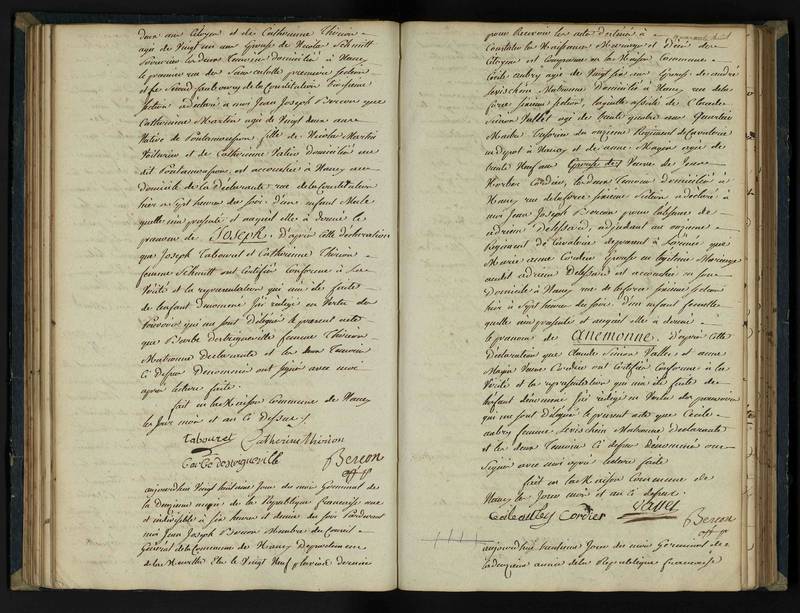 deux ans Citoyen et de Catherinne Thirion
agée de Vingt six ans Epouse de Nicolas Schmitt
les deux Temoins domiciliés à Nancy
le premier rue des Sans culotte premiere section
et le second faubourg de la Constitution troisieme
Section a déclaré à moi Jean Joseph Bercon que
Catherinne Martin agée de Vingt deux ans
Native de Pontamousson fille de Nicolas Martin
Voiturier et de Catherinne domiciliés au
dit Pontamousson, est accouchée à Nancy au
domicile de la Declarante rue de la Constitution
hier à Sept heures du soir d'un enfant Male
quelle m'a presenté et auquel elle a donné le
prenom de Joseph. D'après cette déclaration
que Joseph Tabouret et Catherinne Thirion
femme Schmitt ont Certifiée Conforme à la
Vérité et la representation qui m'a été faite
de l'enfant denommé j'ai redigé en Vertu des
Pouvoirs qui me sont délégué le present acte
que Barbe femme Thirion
Matronne Declarante et les deux Temoins
Ci dessus Denommés ont signé avec moi
après lecture faite.
fait en la Maison Commune de Nancy
les Jour mois et an Ci Dessus
Tabouret Catherine Thirion
Bercon
off p
aujourdhui Vingt huitieme Jour du mois Germinal de
la Deuxieme année de la Republique francaise une
et indivisible à six heures et demie du soir Pardevant
moi Jean Joseph Bercon Membre du Conseil
Général de la Commune de Nancy Departement
de la Meurthe Elu le Vingt Neuf pluviose dernier
pour Recevoir les actes destinés à
Constater les Naissances Mariages et Décès des
Citoyens est Comparue en la Maison Commune
Cécile aubry agée de Vingt six ans Epouse de andré
Matronne Domiciliée à Nancy rue de la
fère sixieme section, laquelle assistée de Claude
Simon Vallet agé de trente quatre ans Quartier
Maitre tresorier du onzieme Regiment de Cavalerie
en depot à Nancy et de anne Magin agée de
trente Neuf ans Epouse de Veuve de Jean
Cordier, les deux Temoins domiciliés à
Nancy rue de la fère sixieme Section a déclaré à
moi Jean Joseph Bercon pour l'absence de
adrien Delissard, adjudant au onzieme
Regiment de Cavalerie
Marie anne Cordier Epouse en legitime Mariage
audit adrien Delissard est accouchée en son
Domicile à Nancy rue de la fère sixieme section
hier à Sept heures du soir. D'un enfant femelle
quelle m'a presenté et auquel elle a donné
le prenom de Anemonne. D'après cette
Déclaration que Claude Simon Vallet et anne
Magin Veuve Cordier ont certifiée Conforme à la
Vérité et la representation qui m'a été faite de
l'enfant denommé j'ai redigé en Vertu des pouvoirs
qui me sont délégué le present acte que Cécile
aubry femme Matronne Declarante
et les deux Temoins Ci dessus dénommés ont
Signé avec moi après lecture faite
fait en la Maison Commune de
Nancy les Jour mois et an Ci dessus.
Cordier Vallet
Bercon
off p
aujourdhui trentieme Jour du mois Germinal de
la deuxieme année de la Republique francaise